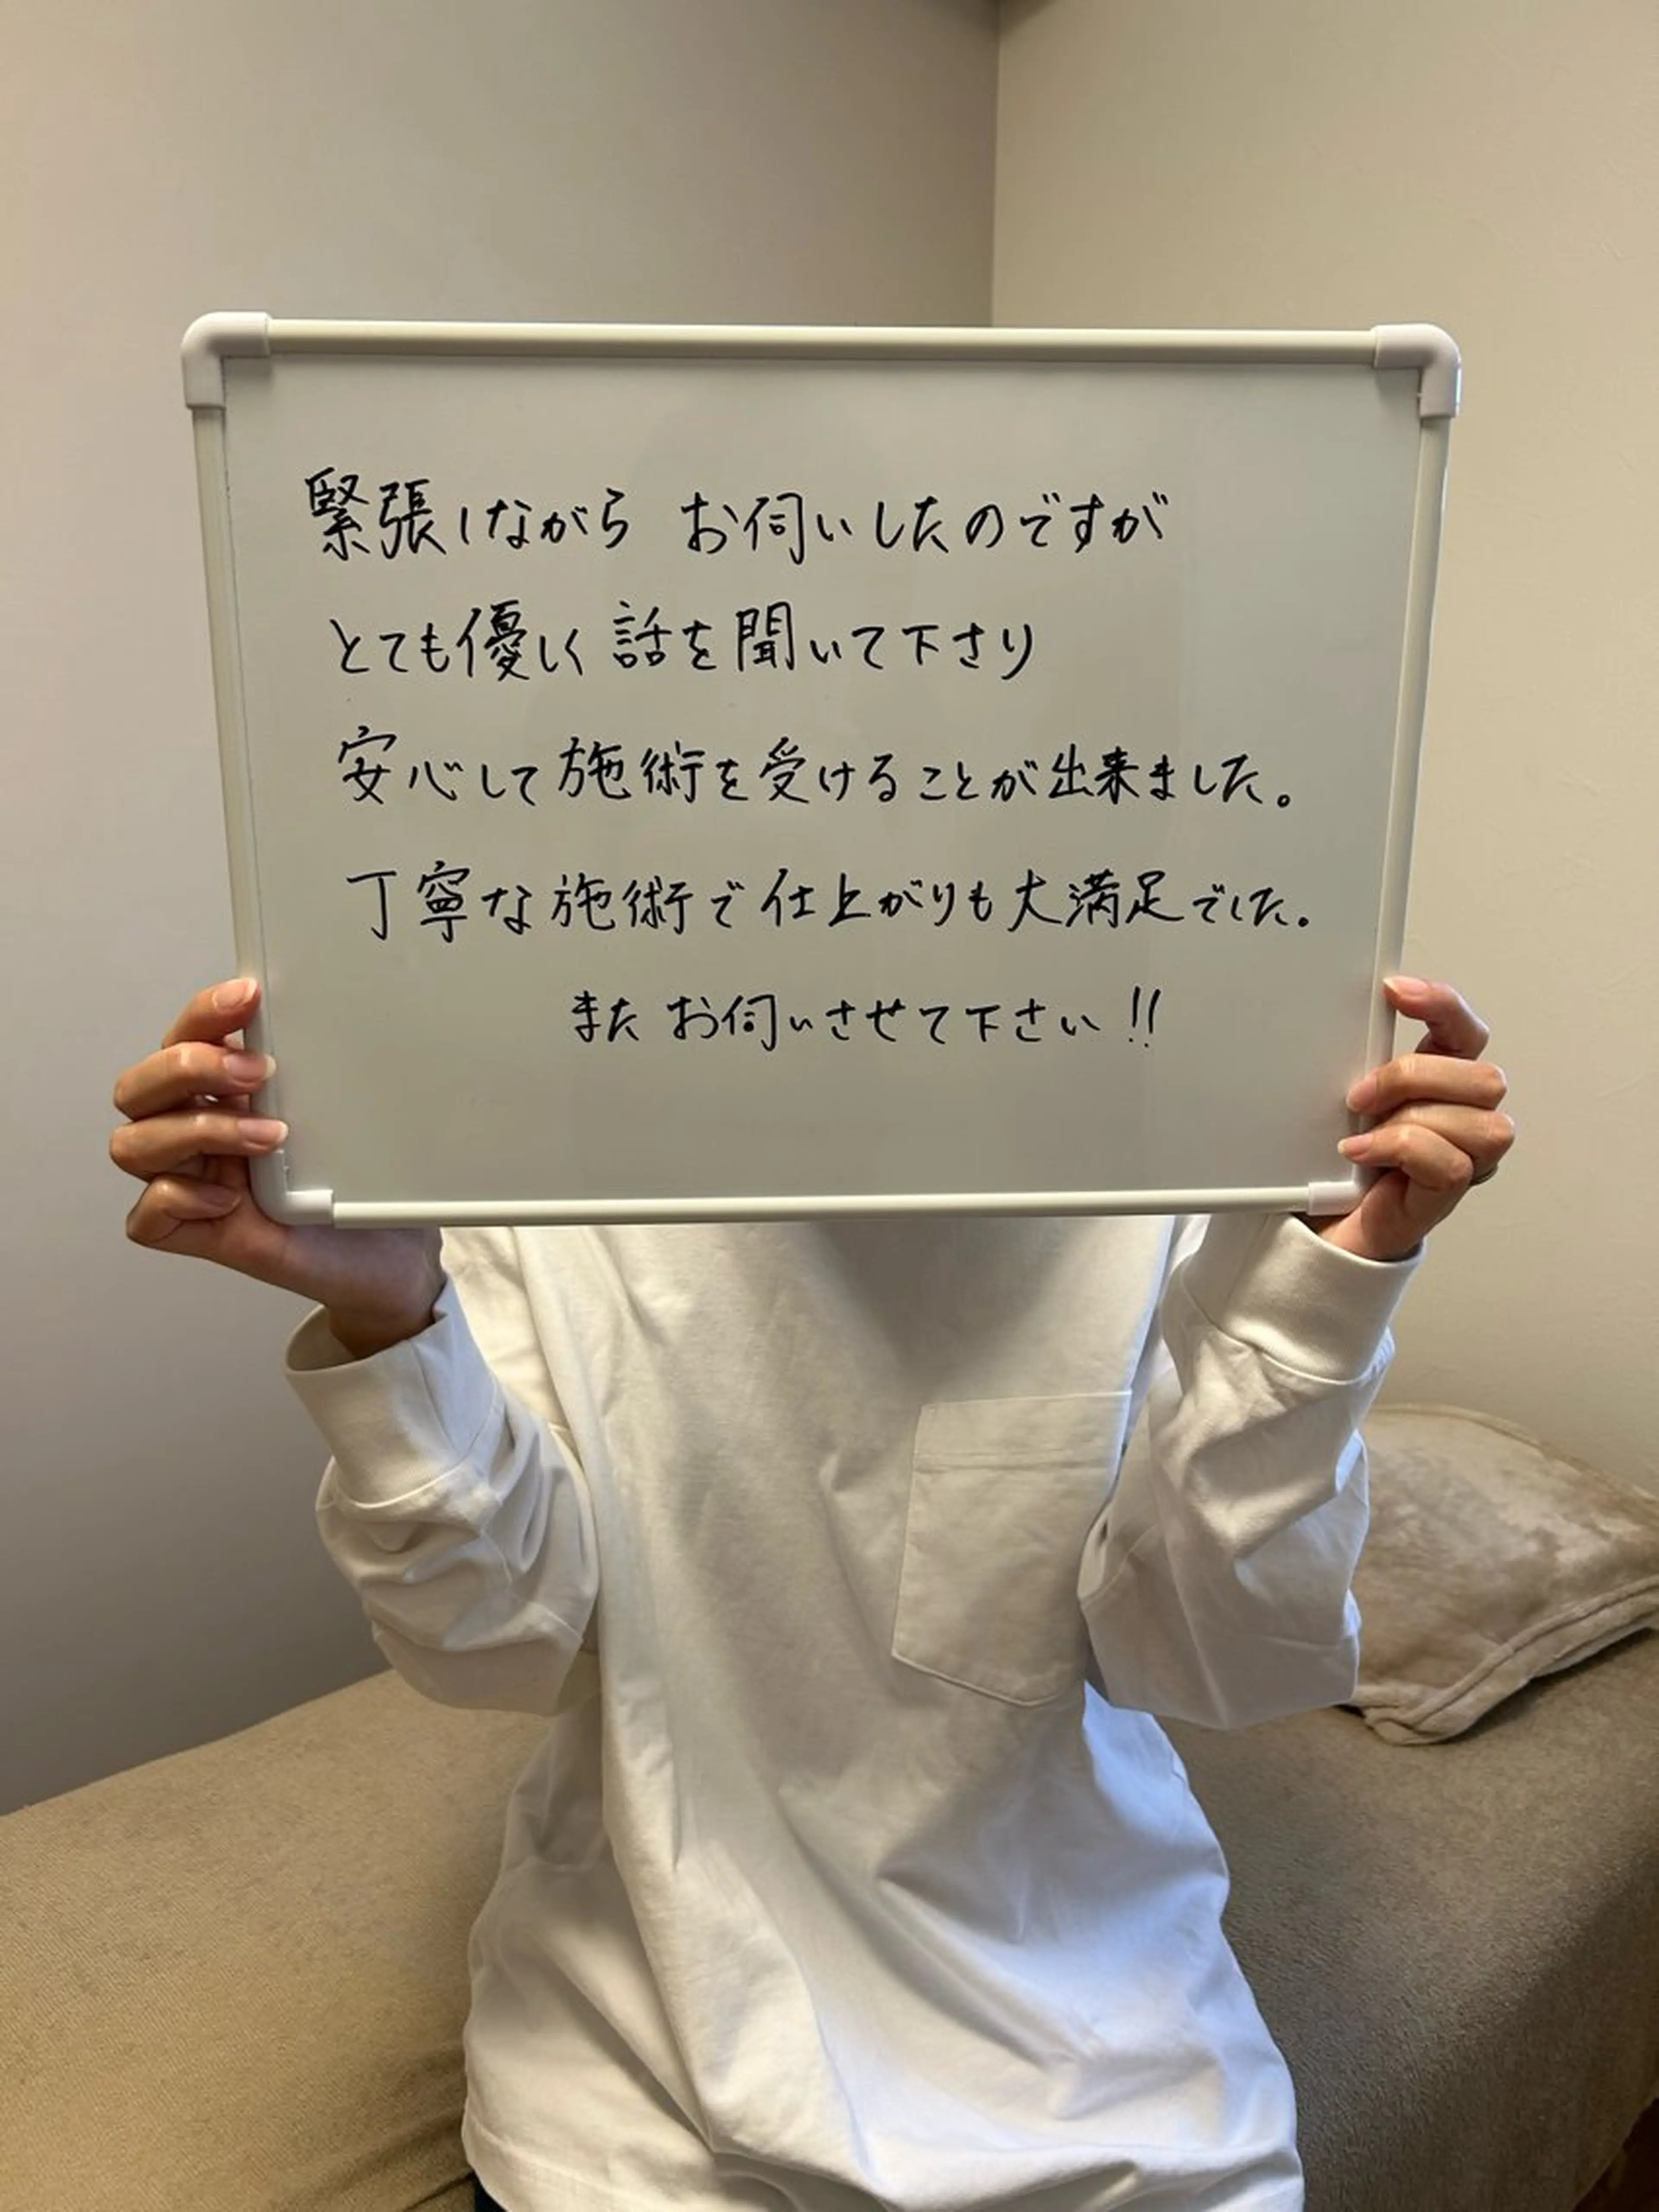 緊張しながら お伺いしたのですが
とても優しく話を聞いて下さり
安心して施術を受けることが出来ました。
丁寧な施術で仕上がりも大満足でした。
また お伺いさせて下さい!!